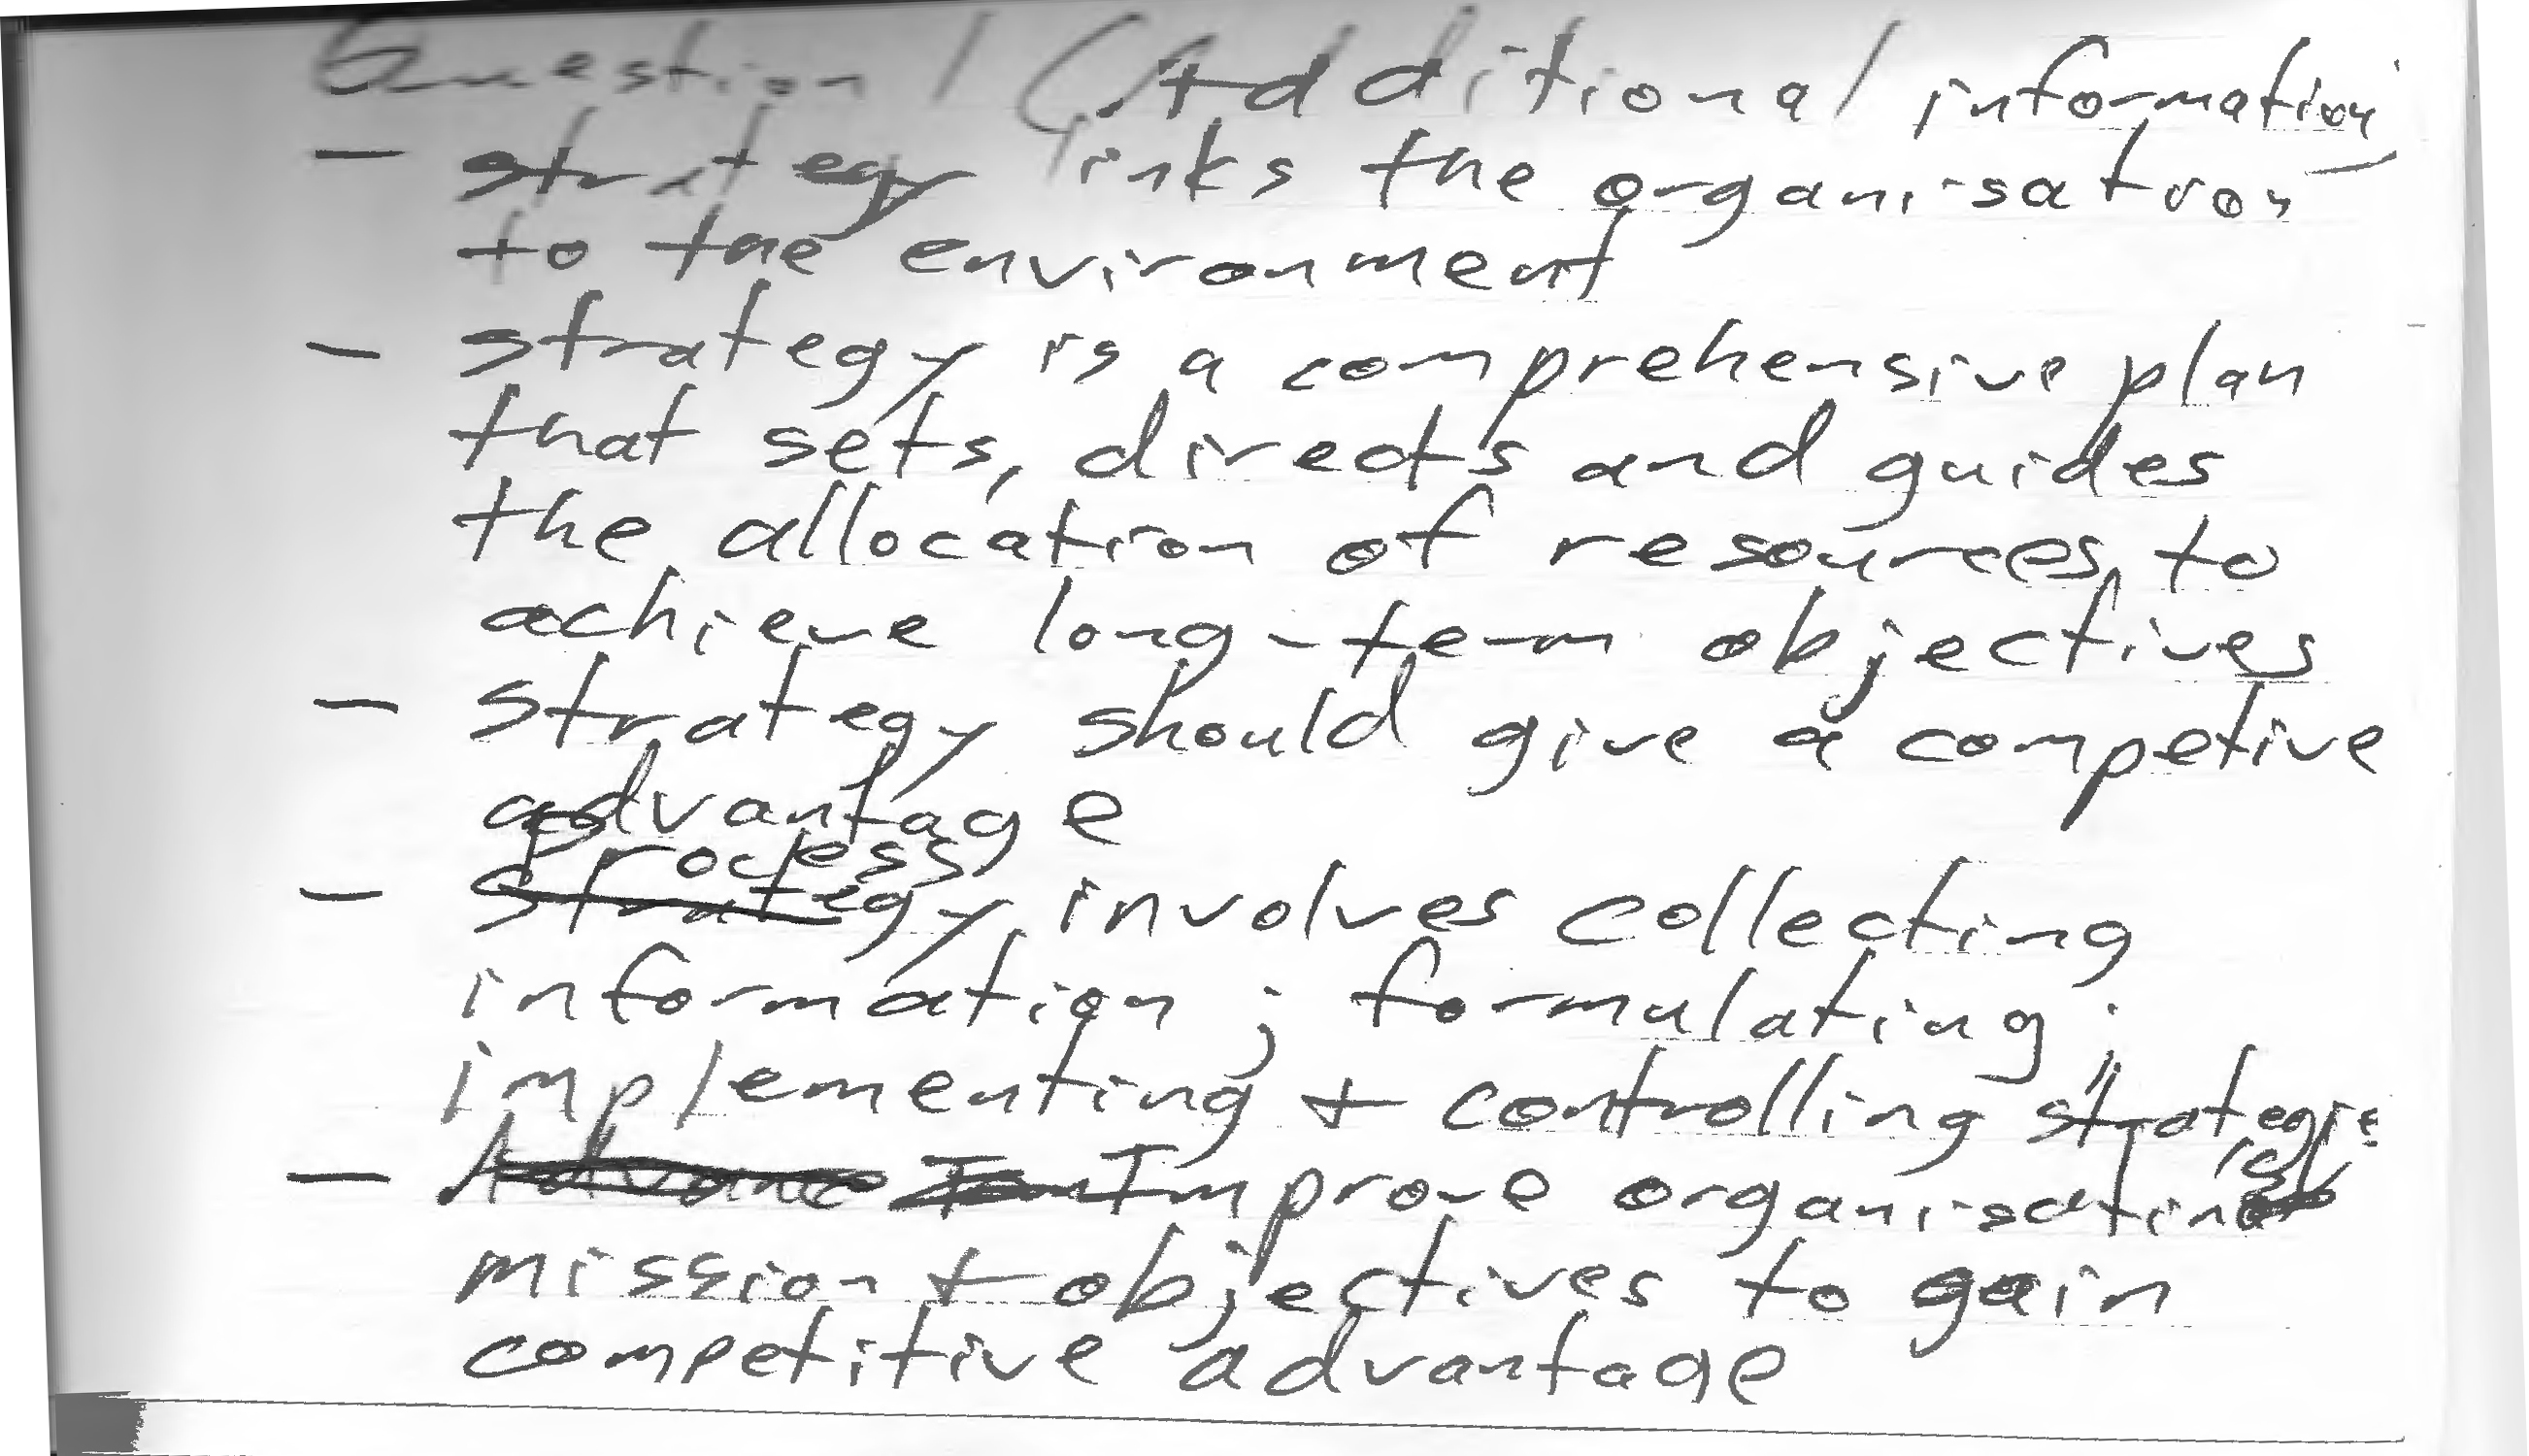 Question 1 (Additional information)
- strategy links the organisation
to the environment
- strategy is a comprehensive plan
that sets, directs and guides
the allocation of resources to
achieve long-term objectives
- strategy should give a competive
advantage
process
- strategy involves collecting
information; formulating;
implementing + controlling strategies
- Advance Improve organisation's
mission + objectives to gain
competitive advantage